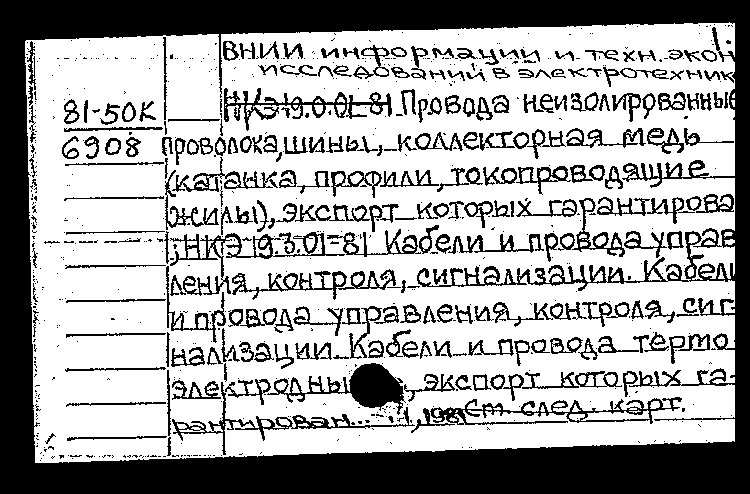 1.
ВНИИ информации и техн. экон
исследований в электротехник
81-50К НКЭ 19.0.01-81 Провода неизолированные
6908 проволока, шины, коллекторная медь
(катанка, профили, токопроводящие
жилы), экспорт которых гарантирова
; НКЭ 19.3.01-81 Кабели и провода управ
ления, контроля, сигнализации. Кабели
и провода управления, контроля, сиг-
нализации. Кабели и провода термо-
электродны , экспорт которых га-
рантирован... , 1981 См. след. карт.